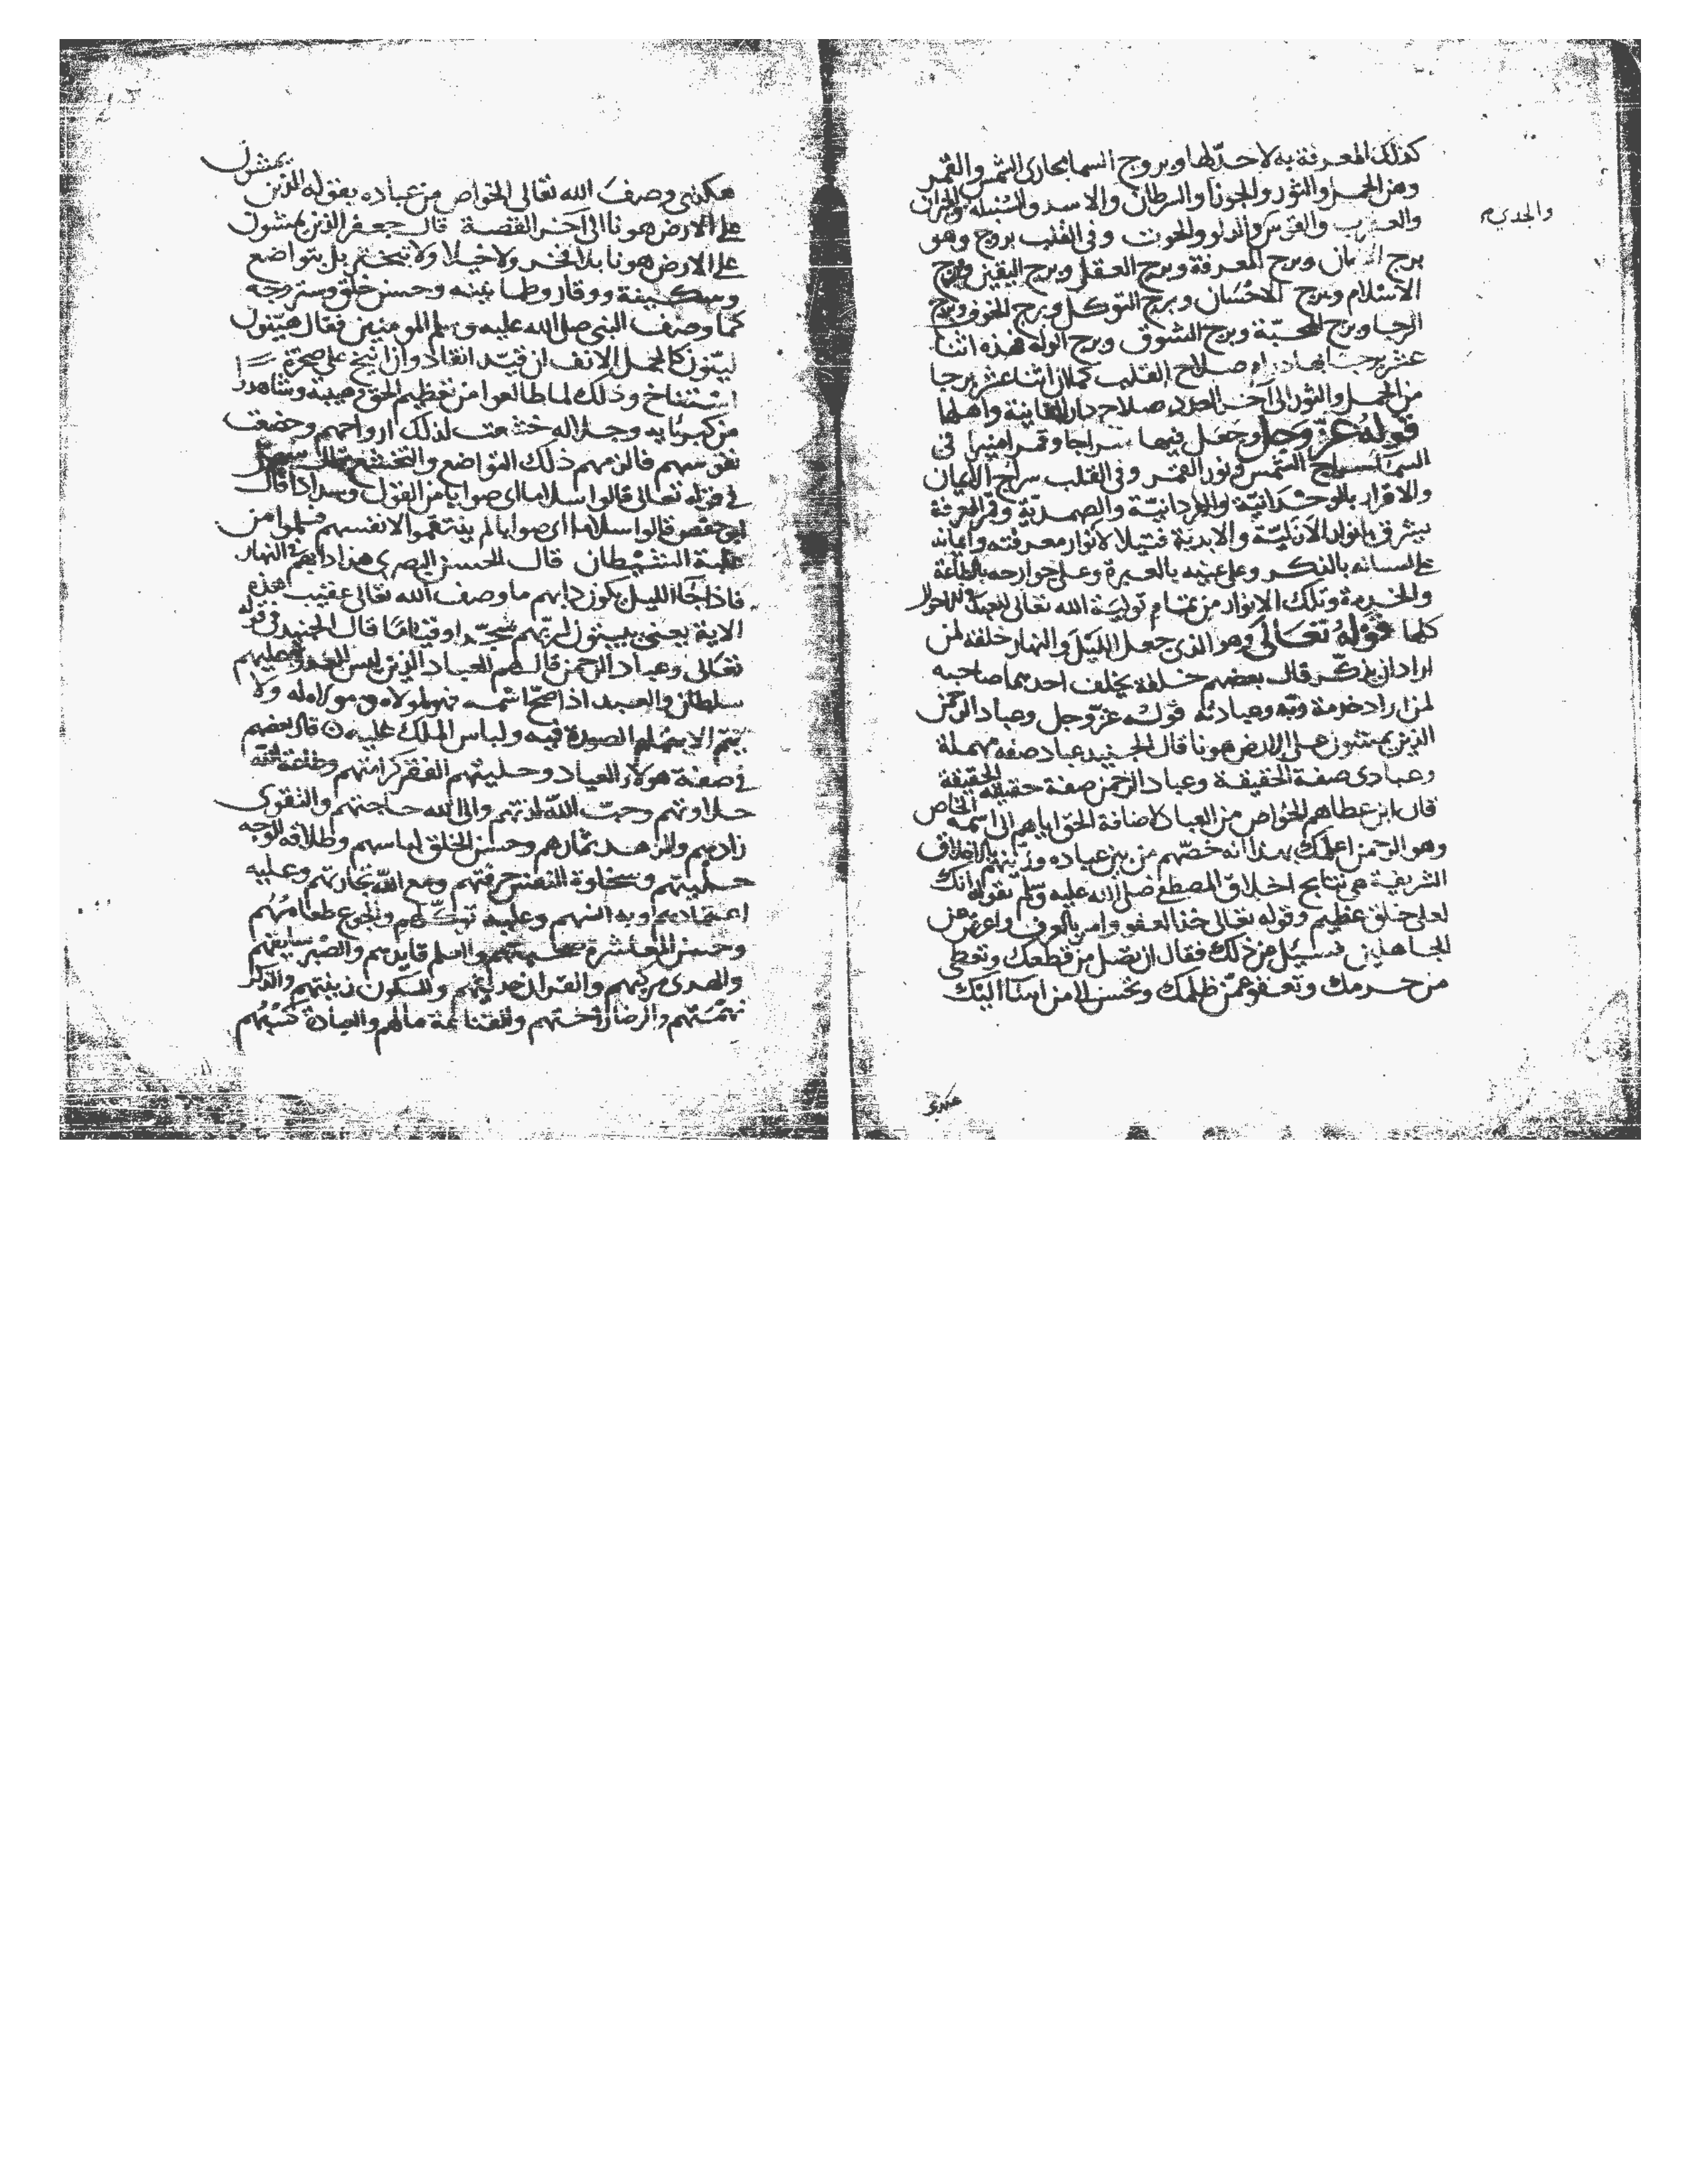 كذلك المعرفة به لا حد لها وبروج السما مجارى الشمس والقمر
وهن الحمل والثور والجوزا والسرطان والاسد والسنبله والميزان
والعقرب والقوس والدلو والحوت وفى القلب بروج وهو
والجدي م
برج الايمان وبرج المعرفة وبرج العقل وبرج اليقين وبرج
الاسلام وبرج الاحسان وبرج التوكل وبرج الخوف وبرج
الرجا وبرج المحبّة وبرج الشوق وبرج الوله فهذه اثنا
عشر برجا بها دوام صلاح القلب كما ان اثنا عشر برجا
من الحمل والثور الى آخر العدد صلاح دار الفانية واهلها
قوله عزّ وجل وجعل فيها سراجا وقمرا منيرا فى
السما سراج الشمس ونور القمر وفى القلب سراج الايمان
والاقرار بالوحدانيّة والفردانيّة والصمديّة وقمر المعرفة
يشرق بانوار الازليّة والابديّة فتيلالا نوار معرفته وايمانه
على لسانه بالذكر وعلى عينيه بالعبرة وعلى جوارحه بالطاعة
والخدمة وتلك الانوار من تمام تولية الله تعالى للعبد فى احوال
كلها قوله تعالى وهو الذى جعل الليل والنهار خلفه لمن
اراد ان يذكّر قال بعضهم خلفة يخلف احدهما صاحبه
لمن اراد خدمة ربّه وعبادته قوله عزّ وجل وعباد الرحمن
الذين يمشون على الارض هونا قال الجنيد عباد صفه مهملة
وعبادى صفة الحقيقة وعباد الرحمن صفة حقيقة الحقيقة
قال ابن عطا هم الخواص من العباد لاضافة الحق اياهم الى اسمه الخاص
وهو الرحمن اعلمك بهذا انه خصّهم من بين عباده وزينهم بالاخلاق
الشريفة هى نتايج اخلاق المصطفى صلى الله عليه وسلم بقوله انك
لعلى خلق عظيم وقوله تعالى خذ العفو وامر بالعرف واعرض عن
الجاهلين فسيل عن ذلك فقال ان تصل من قطعك وتعطى
من حرمك وتعفو عمّن ظلمك وتحسن الى من اسا اليك
هكذى
هكذى وصف الله تعالى الخواص من عباده بقوله الذين يمشون
على الارض هونا الى آخر القصة قال جعفر الذين يمشون
على الارض هونا بلا فخر ولا خيلا ولا تبختر بل بتواضع
وسكينة ووقار وطمانينه وحسن خلق وستر وجه
كما وصف النبى صلى الله عليه وسلم المومنين فقال هينون
لينون كالجمل الانف ان قيّد انقاد وان انيخ على صخرة
استناخ وذلك لما طالعوا من تعظيم الحق وهيبته وشاهدوا
من كبريايه وجلاله خشعت لذلك ارواحهم وخضعت
نفوسهم فالزمهم ذلك التواضع والتخشع قال سهل
فى قوله تعالى قالوا سلاما اى صوابا من القول وسدادا قال
ابو حفص قالوا سلاما اى صوابا لم ينتقموا الانفسهم فسلموا من
غلبة الشيطان قال الحسن البصرى هذا دابهم فى النهار
فاذا جا الليل يكون دابهم ما وصف الله تعالى عقيب هذه
الاية يعنى يبيتون لربّهم سجّدا وقياما قال الجنيد فى قوله
تعالى وعباد الرحمن قال هم العباد الذين ليس للعدو عليهم
سلطان والعبد اذا صحّا سمه فهو لمولاه ومولاه له ولا
يتم الاسم الصورة فيه ولباس الملك عليه قال بعضهم
فى صفة هولا العباد وحليتهم الفقر كرامتهم وطاعة الله
حلاوتهم وحبّ الله لذتهم والى الله حاجتهم والتقوى
زادهم والزهد ثمارهم وحسن الخلق لباسهم وطلاقة الوجه
حليتهم وسخاوة النفس حرفتهم ومع الله تجارتهم وعليه
اعتمادهم وبه انسهم وعليه توكلهم والجوع طعامهم
وحسن المعاشرة صحبتهم والعلم قايدهم والصبر سايقهم
والهدى مركبهم والقران حديثهم والسكون زينتهم والذكر
نهمتهم والرضا راحتهم والقناعة مالهم والعبادة كسبهم